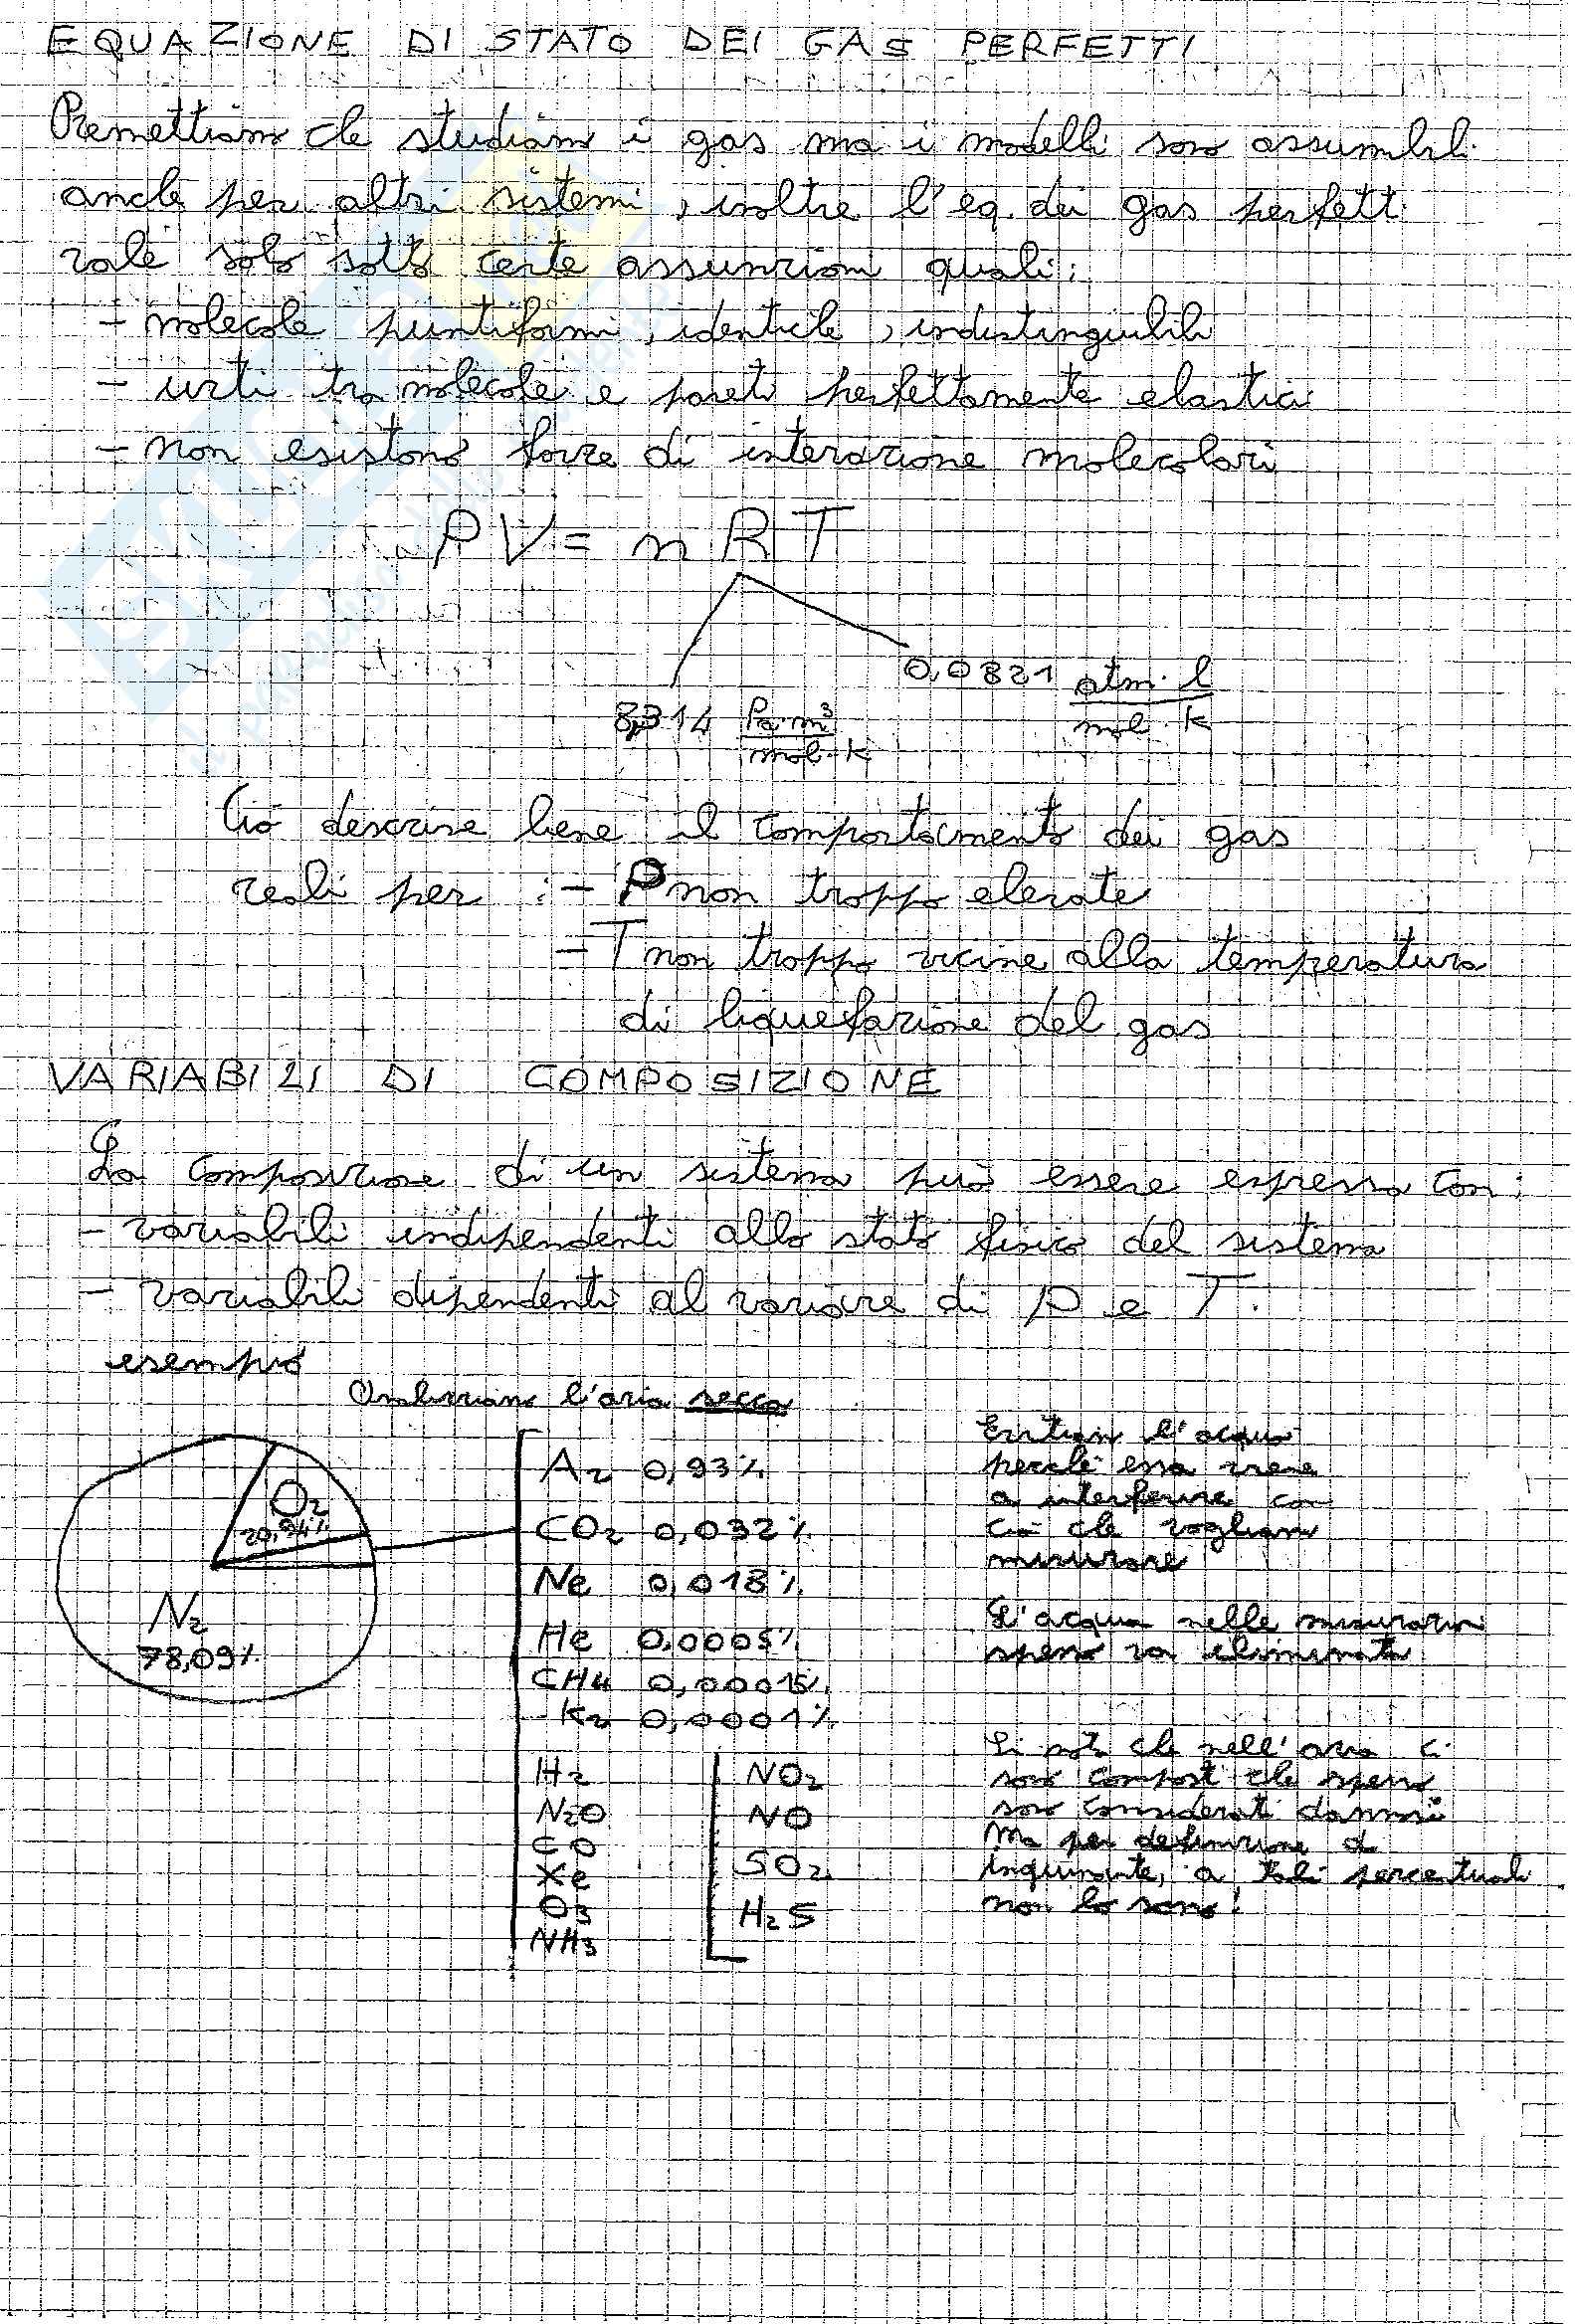 EQUAZIONE DI STATO DEI GAS PERFETTI
Premettiamo che studiamo i gas ma i modelli sono assumibili
anche per altri sistemi, inoltre l'eq. dei gas perfetti
vale solo sotto certe assunzioni quali:
- molecole puntiformi, identiche, indistinguibili
- urti tra molecole e pareti perfettamente elastici
- non esistono forze di interazione molecolari
PV = nRT
0,0821 atm·l / mol·K
8,314 Pa·m³ / mol·K
Ciò descrive bene il comportamento dei gas
reali per : - P non troppo elevate
- T non troppo vicine alla temperatura
di liquefazione del gas
VARIABILI DI COMPOSIZIONE
La composizione di un sistema può essere espressa con:
- variabili indipendenti allo stato fisico del sistema
- variabili dipendenti al variare di P e T.
esempio
Analizziamo l'aria secca
O₂
20,94%
N₂
78,09%
Ar 0,93%
CO₂ 0,032%
Ne 0,018%
He 0,0005%
CH₄ 0,00015%
Kr 0,0001%
H₂
N₂O
CO
Xe
O₃
NH₃
NO₂
NO
SO₂
H₂S
Evitiam l'acqua
perché essa viene
a interferire con
ciò che vogliam
misurare
L'acqua nelle misurazioni
spesso va eliminata
Si nota che nell'aria ci
sono composti che spesso
sono considerati dannosi
Ma per definizione di
inquinante, a tali percentuali
non lo sono!